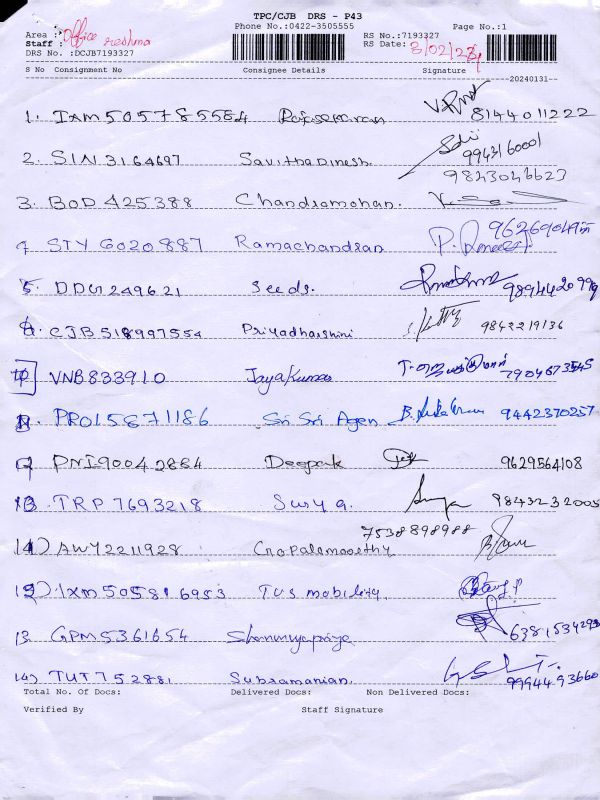 TPC/CJB DRS - P43
Phone No.:0422-3505555 Page No.:1
Area : Office RS No.:7193327
Staff : reshma RS Date: 3/02/24
DRS No. :DCJB7193327
S No Consignment No Consignee Details Signature
20240131
1. IXM505785564 Rajasekaran 8144011222
2. SIN3164697 Savitha Dinesh. 9943160001
9843046623
3. BOD 425388 Chandramohan.
STY 6020887 Ramachandran
5. DDG1249621 Seeds.
CJB518997554 Priyadharshini 9842219136
VNB833910 Jayakumar 7904673545
PRO15871186 Sri Sri Agen 9442370257
PNI90042884 Deepak 9629564108
13. TRP 7693218 Surya. 9843232005
7538898988
14) AWY2211928 Gopalamoorthy
15) IXM505816953 TVS mobility.
13. GPM5361654 Shanmugapriya 6381534293
14) TUT752881 Subramanian. 9994493660
Total No. Of Docs: Delivered Docs: Non Delivered Docs:
Verified By Staff Signature